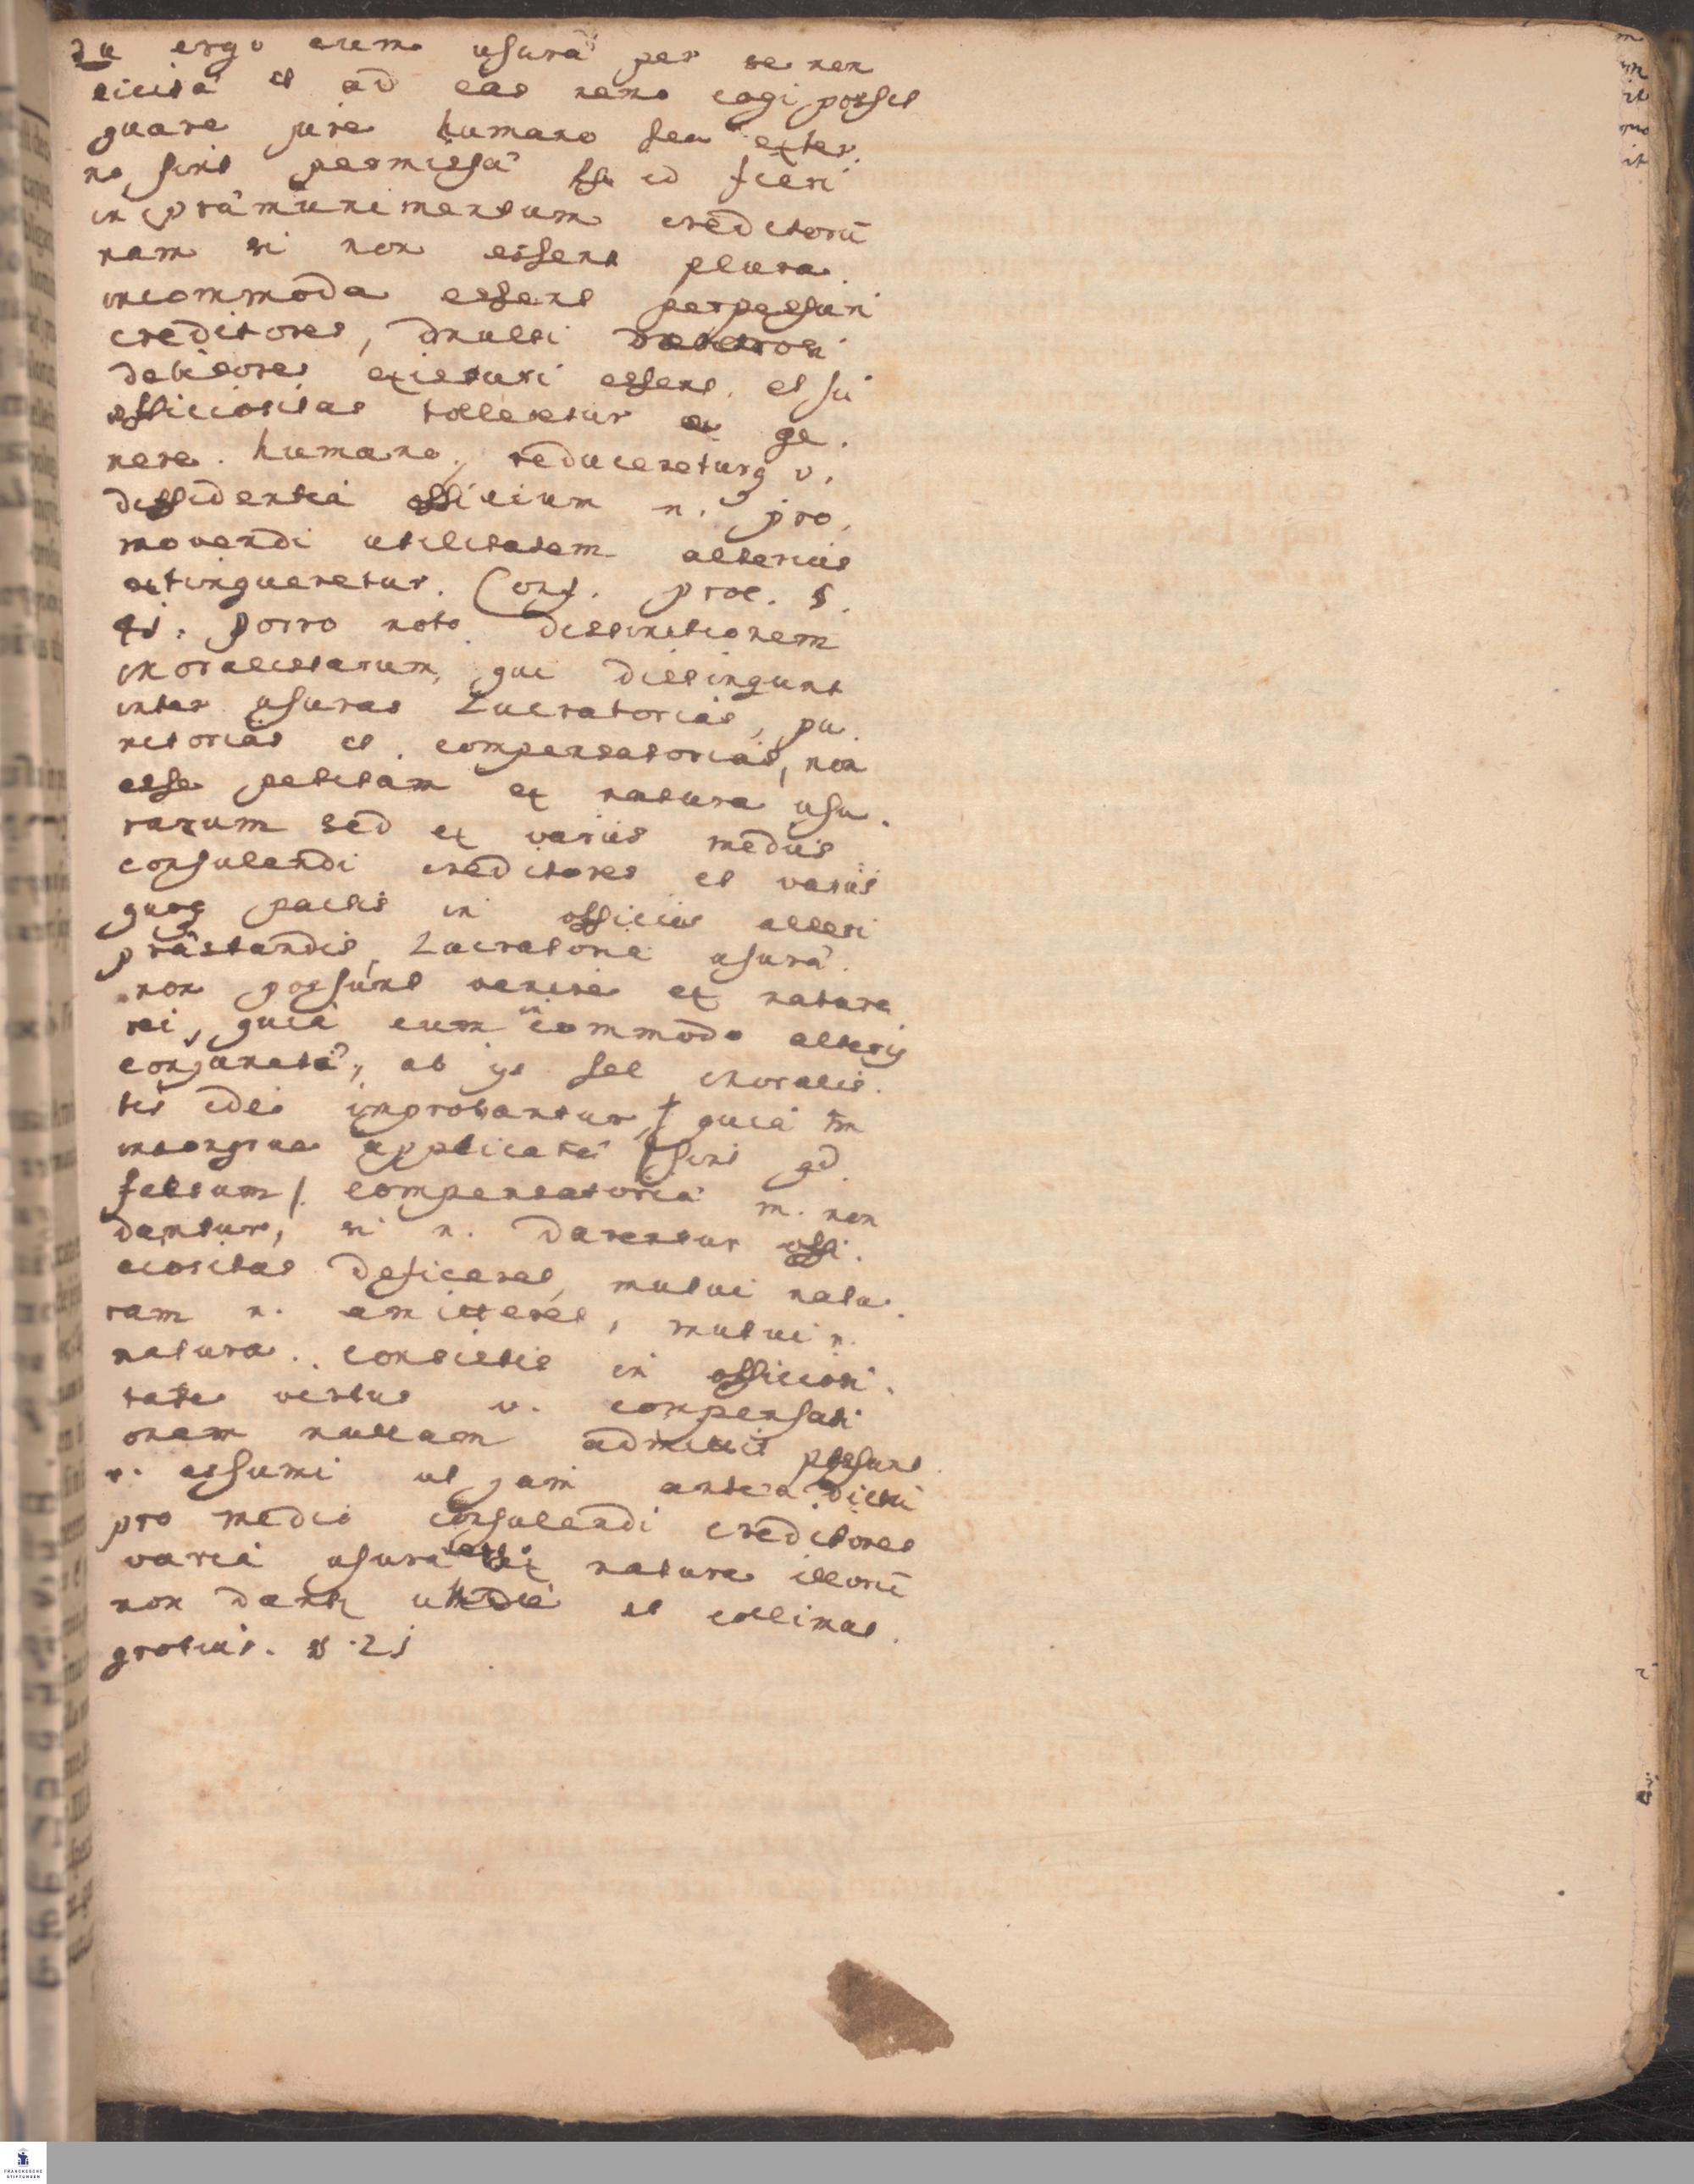 ergo cum usurã per se non
licitã et ad eas nemo cogi posset
quare jure humano seu exter.
no sint permissã id fieri
in prãmunimentum creditorũ
nam si non essent plura
incommoda essent perpessuri
creditores, multi
debitores exituri essent. et
officiositas tolleretur ex ge.
nere humano, reduceretur v.
diffidentia officium n. pro.
movendi utilitatem alterius
extingueretur. Conf. proe. §.
porro noto distinctionem
moralistarum, qui distingunt
inter usuras Lucratorias, pu.
nitorias et compensatorias, non
esse petitam ex natura usu.
rarum sed ex variis mediis
consulendi creditores et variis
quoq pactis in officiis alteri
prãstandis, Lucratoriã usurã
non possunt venire ex natura
rei, quia cum incommodo alterig
conjunctã, ab ijs moralis.
tis improbantur, quia tm
incongrue applicatã sint qd
falsum /. compensatoriã m. non
dantur, si n. darentur offi.
ciositas deficeret, mutui natu.
ram n. amitteret, mutui n.
natura consistit in officiosi.
tate virtus v. compensati
onem nullam admittit possunt
n. assumi ut jam antea dixi
pro medio consulendi creditores
varia usurã ex natura illorũ
non dantr et collimat
grotius. § 21
FRANCKESCHE
STIFTUNGEN